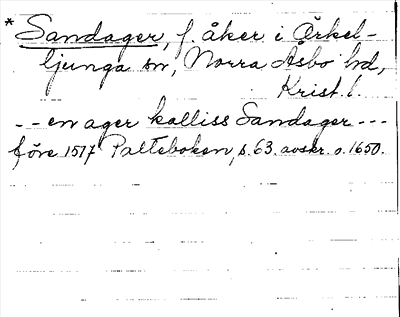 * Sandager, f. åker i Örkel-
ljunga sn, Norra Åsbo hd,
Krist. l.
-- en ager kalliss Sandager ---
före 1517 Palteboken, s. 63. avskr. o. 1650.